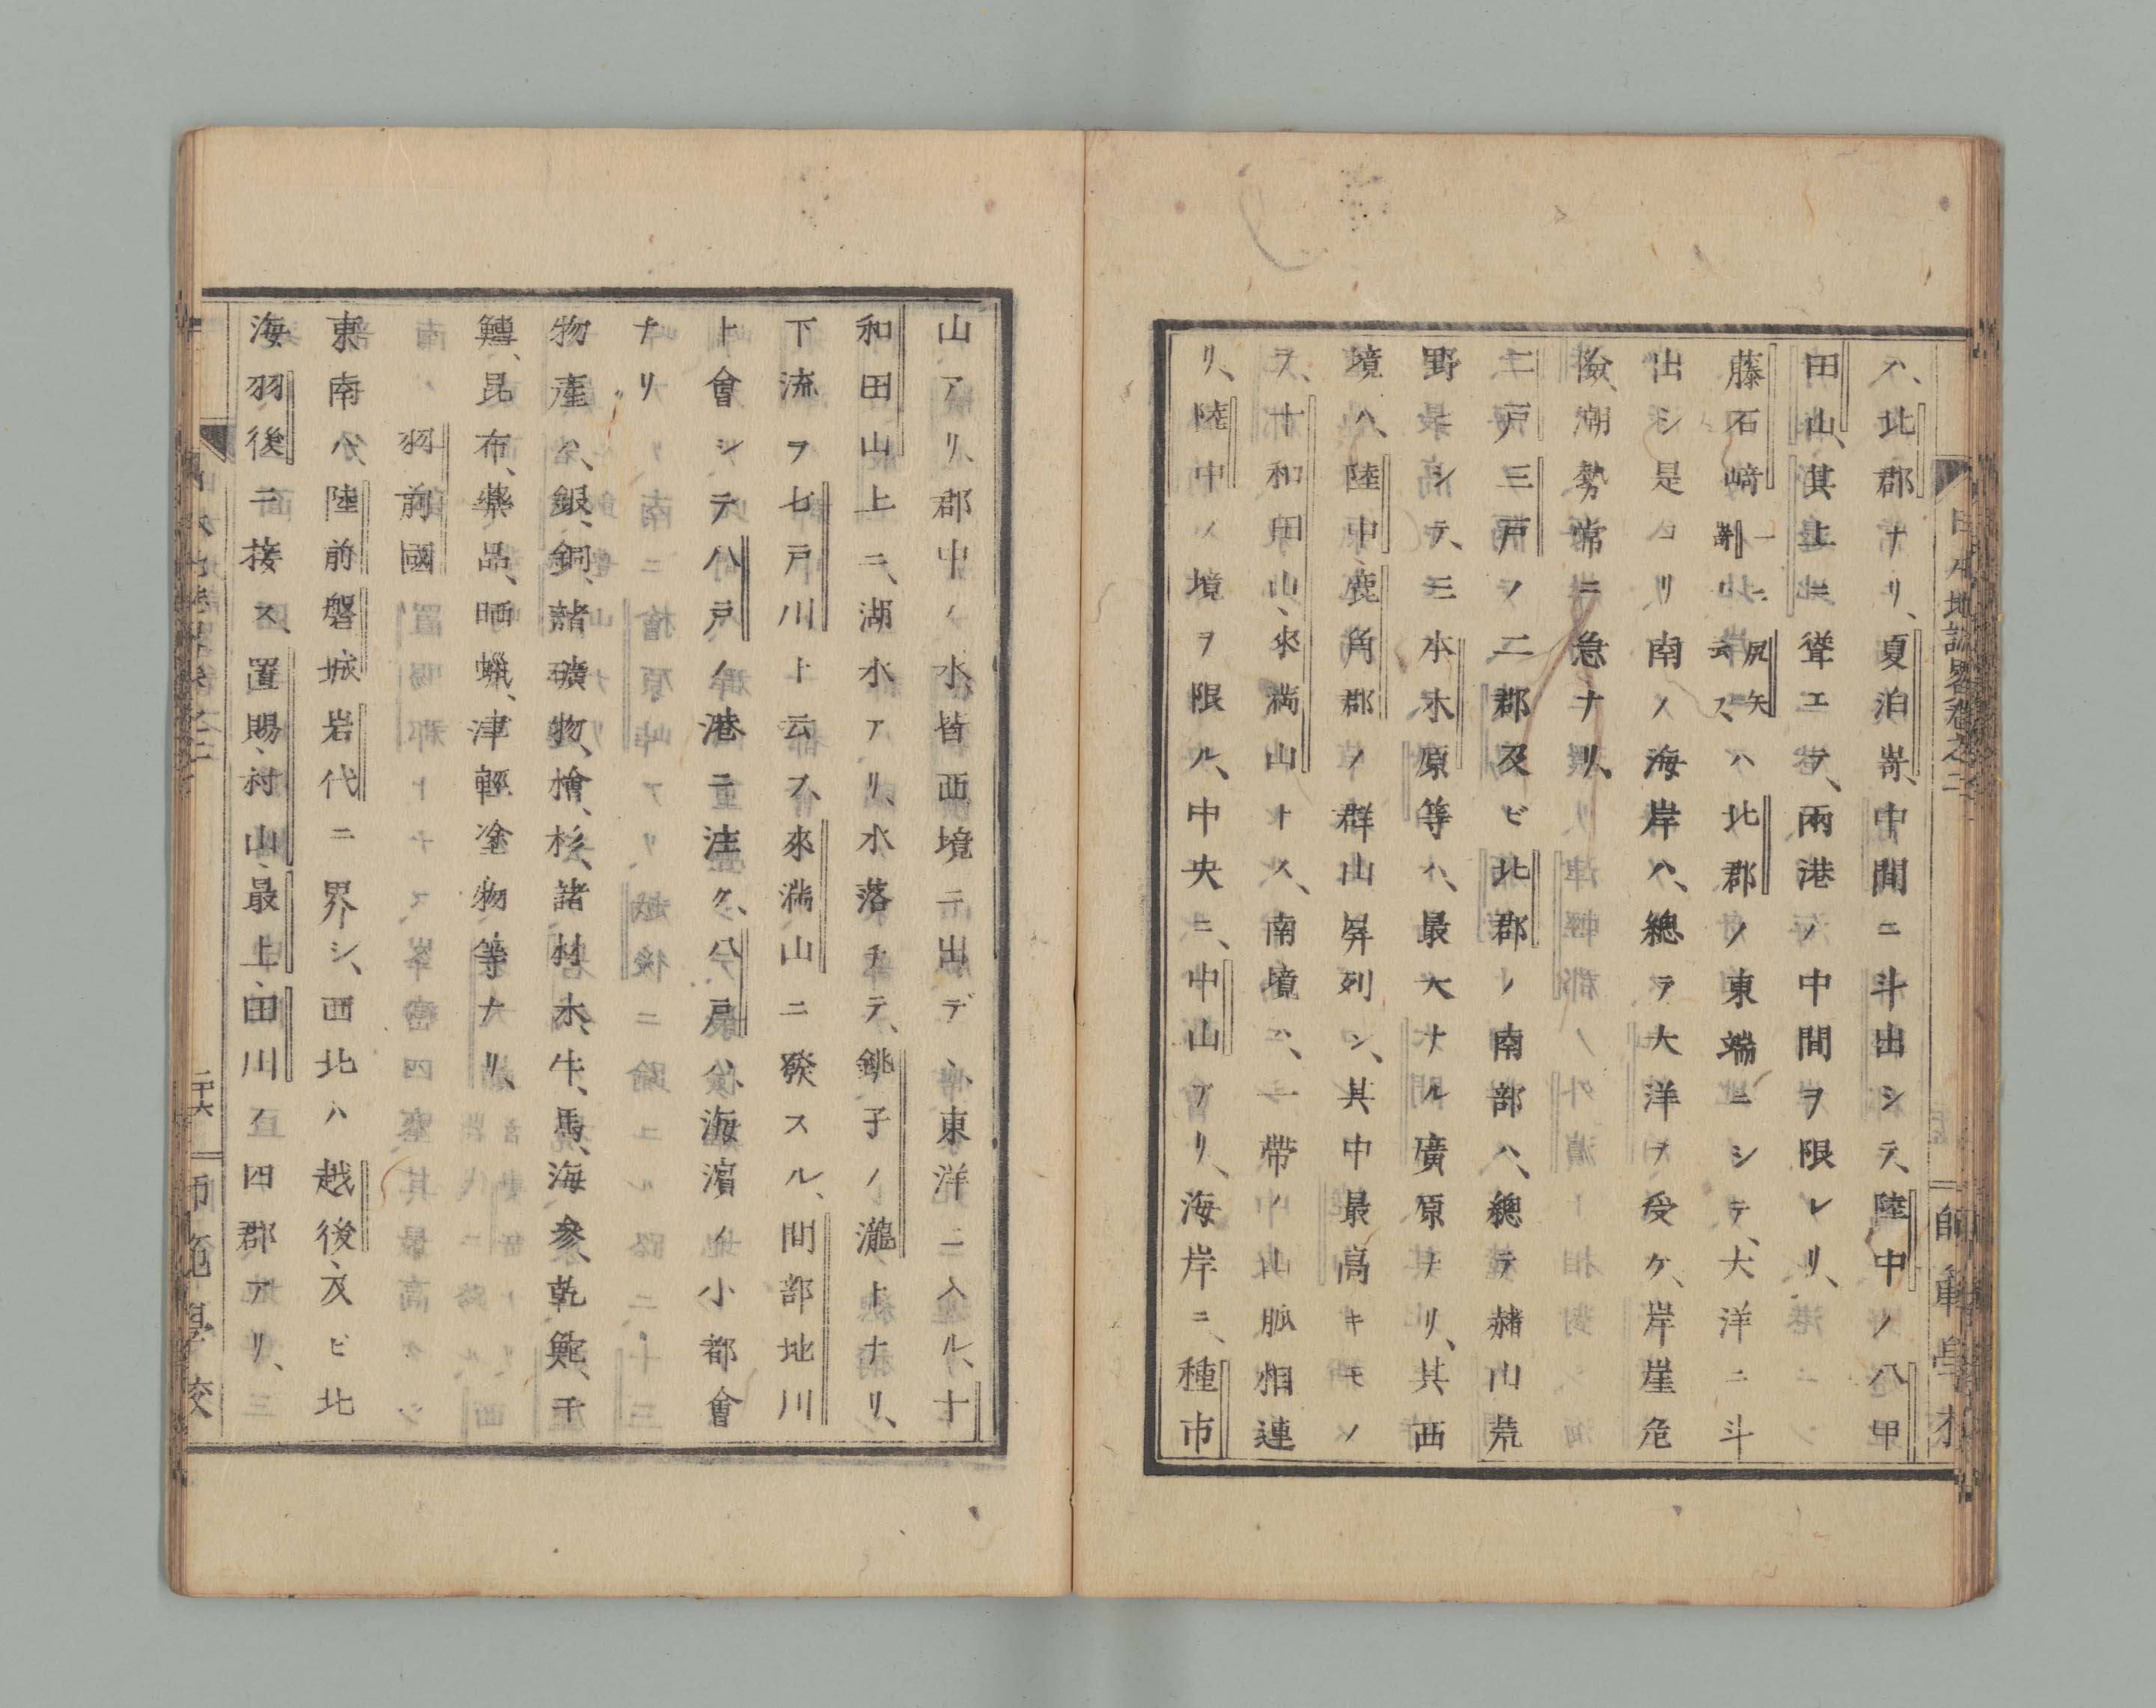 日本地誌畧卷之二
師範學校
ハ、北郡ナリ、夏泊嵜、中間ニ斗出シテ、陸中ノ八甲
田山、其上ニ聳エテ、兩港ノ中間ヲ限レリ、
藤石﨑一ニ尻矢嵜ト云フ、ハ北郡ノ東端ニシテ、大洋ニ斗
出シ是ヨリ南ノ海岸ハ、總テ大洋ヲ受ケ、岸崖危
儉、潮勢常ニ急ナリ、
二戸三戸ノ二郡及ビ北郡ノ南部ハ、總テ赭山荒
野ニシテ、三本木原等ハ、最大ナル廣原ナリ、其西
境ハ、陸中鹿角郡ノ群山屏列シ、其中最高キモノ
ヲ、十和田山、來滿山トス、南境ハ、一帶ノ山脈相連
リ、陸中ノ境ヲ限ル、中央ニ、中山アリ、海岸ニ、種市
山アリ、郡中ノ水皆西境ニ出デ、東洋ニ入ル、十
和田山上ニ、湖水アリ、水落チテ、銚子ノ瀧トナリ、
下流ヲ七戸川ト云フ、來滿山ニ發スル、間部地川
ト會シテ八戸ノ港ニ注ク、八戸ハ、海濱ノ小都會
ナリ
物產ハ、銀、銅、諸礦物、檜、杉、諸材木、牛、馬、海參、乾鮑、干
鱈、昆布、藥品、晒蠟、津輕塗物等ナリ、
羽前國
東南ハ、陸前磐城岩代ニ界シ、西北ハ越後、及ビ北
海羽後ニ接ス、置賜、村山、最上、田川ノ四郡アリ、三
二十六
師範學校